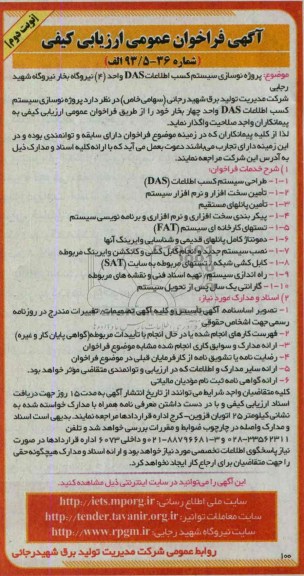 نوبت دوم
آگهی فراخوان عمومی ارزیابی کیفی
(شماره ۳۶-۹۳/۵ الف)
موضوع: پروژه نوسازی سیستم کسب اطلاعات DAS واحد (۴) نیروگاه بخار نیروگاه شهید
رجایی
شرکت مدیریت تولید برق شهید رجائی (سهامی خاص) در نظر دارد پروژه نوسازی سیستم
کسب اطلاعات DAS واحد چهار بخار خود را از طریق فراخوان عمومی ارزیابی کیفی به
پیمانکاران واجد صلاحیت واگذار نماید.
لذا از کلیه پیمانکاران که در زمینه موضوع فراخوان دارای سابقه و توانمندی بوده و در
این زمینه دارای تجارب می‌باشند دعوت بعمل می آید که با ارائه کلیه اسناد و مدارک ذیل
به آدرس این شرکت مراجعه نمایند.
۱) شرح خدمات فراخوان:
۱-۱- طراحی سیستم کسب اطلاعات (DAS)
۱-۲- تأمین سخت افزار و نرم افزار سیستم
۱-۳- تأمین پانلهای مستقیم
۱-۴- پیکر بندی سخت افزاری و نرم افزاری و برنامه نویسی سیستم
۱-۵- تستهای کارخانه ای سیستم (FAT)
۱-۶- دمونتاژ کامل پانلهای قدیمی و شناسایی وایرینگ آنها
۱-۷- نصب سیستم جدید و انجام کابل کشی و کانکشن وایرینگ مربوطه
۱-۸- کابل کشی شبکه (تستهای مربوطه به سایت (SAT)
۱-۹- راه اندازی سیستم، تهیه اسناد فنی و نقشه های مربوطه
۱-۱۰- گارانتی یک سال پس از تحویل سیستم
۲) اسناد و مدارک مورد نیاز:
۱- تصویر اساسنامه آگهی تأسیس و کلیه آگهی تصمیمات، تغییرات مندرج در روزنامه
رسمی جهت اشخاص حقوقی
۲- فهرست کارهای انجام شده یا در حال انجام با تأییدات مربوطه (گواهی پایان کار و غیره)
۳- ارائه مدارک و سوابق کاری انجام شده مشابه موضوع فراخوان
۴- رضایت نامه یا تشویق نامه از کارفرمایان قبلی در موضوع فراخوان
۵- ارائه سایر مدارک و اطلاعات که در ارزیابی و توانمندی متقاضی مؤثر خواهد بود.
۶- ارائه گواهی نامه ثبت نام مؤدیان مالیاتی
کلیه متقاضیان واجد شرایط می توانند از تاریخ انتشار آگهی به مدت ۱۵ روز جهت دریافت
اسناد ارزیابی کیفی و با در دست داشتن معرفی نامه همراه با مدارک خواسته شده به
نشانی کیلومتر ۲۵ اتوبان قزوین-کرج اداره قراردادها مراجعه نمایند. بدیهی است اسناد
و مدارک واصله در چارچوب ضوابط و مقررات بررسی خواهد شد و تلفن
۰۲۸-۳۳۵۶۲۳۱۱ و ۳-۰۲۱-۸۸۷۹۶۶۸۱ داخلی ۶۰۷۳ اداره قراردادها در صورت
نیاز پاسخگوی اطلاعات تخصصی مورد نیاز خواهد بود و ارائه اسناد و مدارک هیچگونه حقی
را جهت متقاضیان برای ارجاع کار ایجاد نخواهد کرد.
این آگهی را می‌توانید در سایت اینترنتی ذیل مشاهده کنید.
سایت ملی اطلاع رسانی: http://iets.mporg.ir
سایت معاملات توانیر: http://tender.tavanir.org.ir
سایت نیروگاه شهید رجایی: http://www.rpgm.ir
روابط عمومی شرکت مدیریت تولید برق شهیدرجائی
۱۰۰